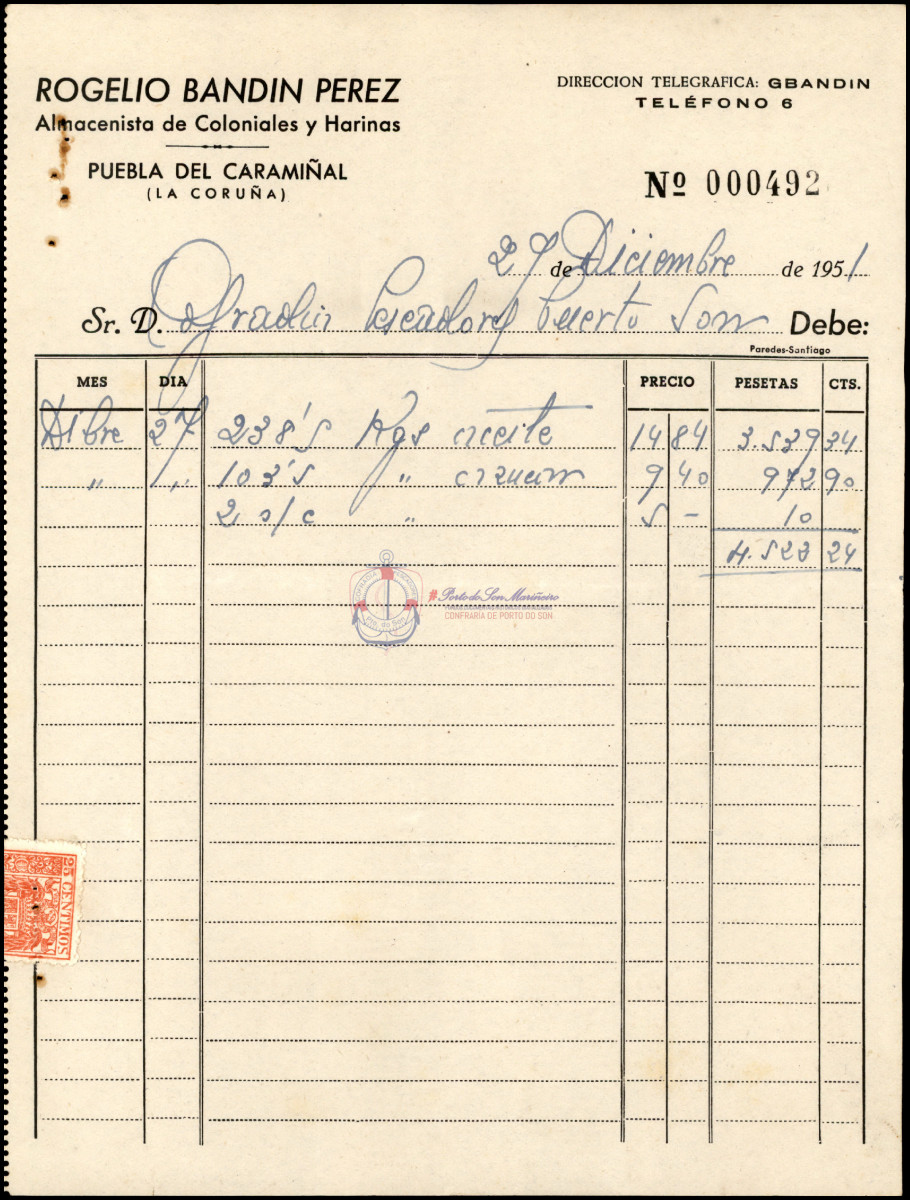 ROGELIO BANDIN PEREZ
Almacenista de Coloniales y Harinas
PUEBLA DEL CARAMIÑAL
(LA CORUÑA)
DIRECCION TELEGRAFICA: GBANDIN
TELÉFONO 6
Nº 000492
27 de Diciembre de 1951
Sr. D. Pescadores Puerto Son Debe:
Paredes-Santiago
MES DIA PRECIO PESETAS CTS.
Dibre 27 238's Kgs aceite 14 84 3.539 34
" " 103's " azucar 9 40 972 90
2 s/c " 5 - 10
4.523 24
COFRADIA PESCADORES
Pto. do Son
#Porto do Son Mariñeiro
CONFRARÍA DE PORTO DO SON
25 CENTIMOS